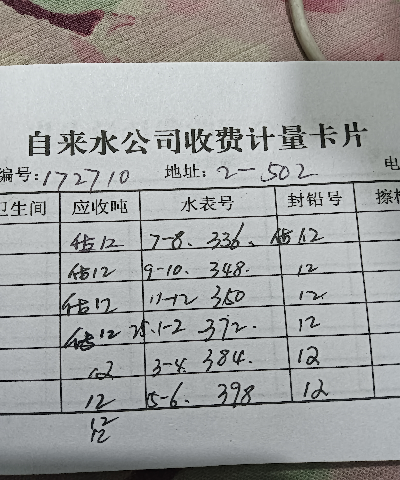 自来水公司收费计量卡片
编号:172710 地址:2-502 电
卫生间 应收吨 水表号 封铅号 擦
估12 7-8. 336. 估12
估12 9-10. 348. 12
估12 11-12 360 12
估12 25.1-2 372. 12
12 3-4. 384. 12
12 5-6. 398 12
12
12